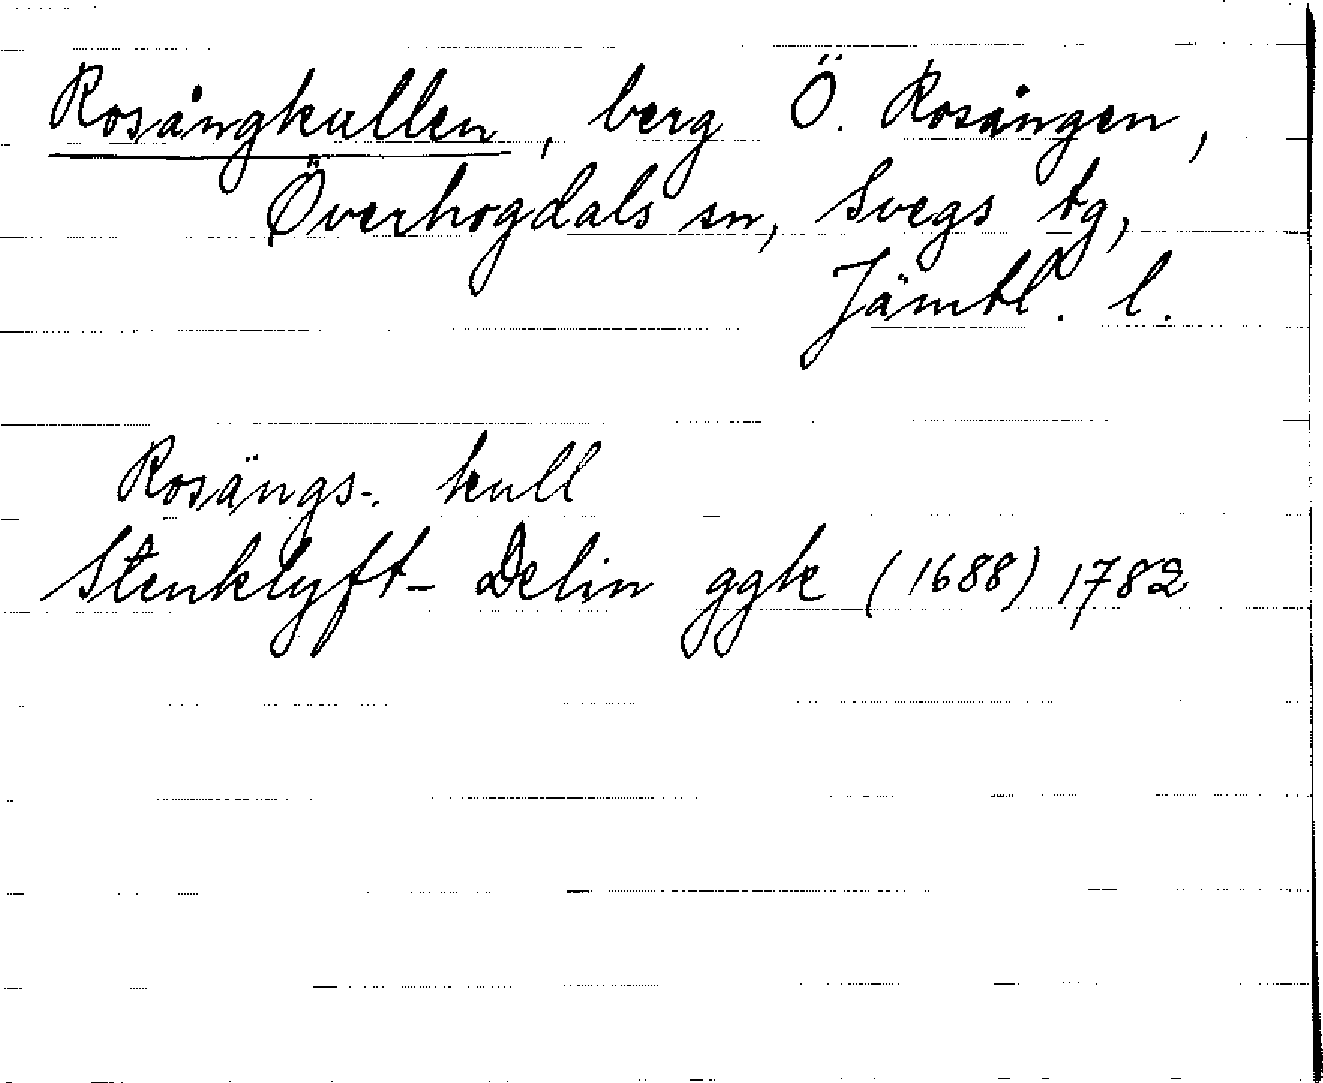 Rosångkullen, berg Ö. Rosången,
Överhogdals sn, Svegs tg,
Jämtl. l.
Rosängs-. kull
Stenklyft- Delin ggk (1688) 1782